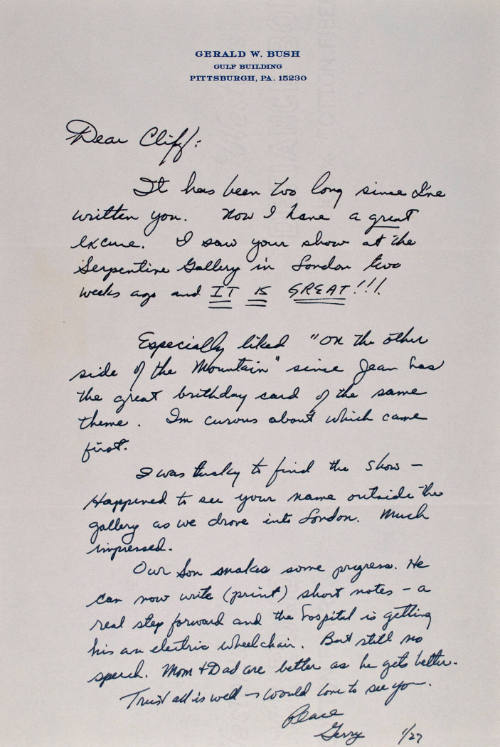 GERALD W. BUSH
GULF BUILDING
PITTSBURGH, PA. 15230
Dear Cliff:
It has been too long since I've
written you. Now I have a great
excuse. I saw your show at the
Serpentine Gallery in London two
weeks ago and IT IS GREAT!!!.
Especially liked "On the other
side of the Mountain" since Jean has
the great birthday card of the same
theme. I'm curious about which came
first.
I was lucky to find the show –
Happened to see your name outside the
gallery as we drove into London. Much
impressed.
Our son makes some progress. He
can now write (print) short notes – a
real step forward and the hospital is getting
him an electric wheelchair. But still no
speech. Mom + Dad are better as he gets better.
Trust all is well – would love to see you.
Peace
Gerry 1/27